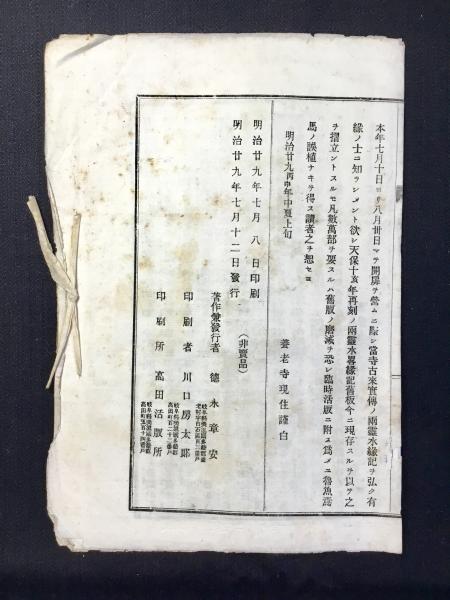 本年七月十日ヨリ八月卅日マテ開扉ヲ營ムニ際シ當寺古來實傳ノ兩靈水緣記ヲ弘ク有
緣ノ士ニ知ラシメント欲シ天保十亥年再刻ノ兩靈水畧緣記舊板今ニ現存スルヲ以テ之
ヲ摺立ントスルモ凡數萬部ヲ要スルハ舊版ノ磨滅ヲ恐レ臨時活版ニ附ス爲メニ魯魚焉
馬ノ誤植ナキヲ得ス讀者之ヲ恕セヨ
明治廿九丙申年中夏上旬
養老寺現住謹白
明治廿九年七月八日印刷
明治廿九年七月十二日發行
(非賣品)
著作兼發行者 德永章安
印刷者 川口房太郎
岐阜縣美濃國多藝郡
高田町百二十三番戶
印刷所 高田活版所
岐阜縣美濃國多藝郡
高田町五百十四番戶